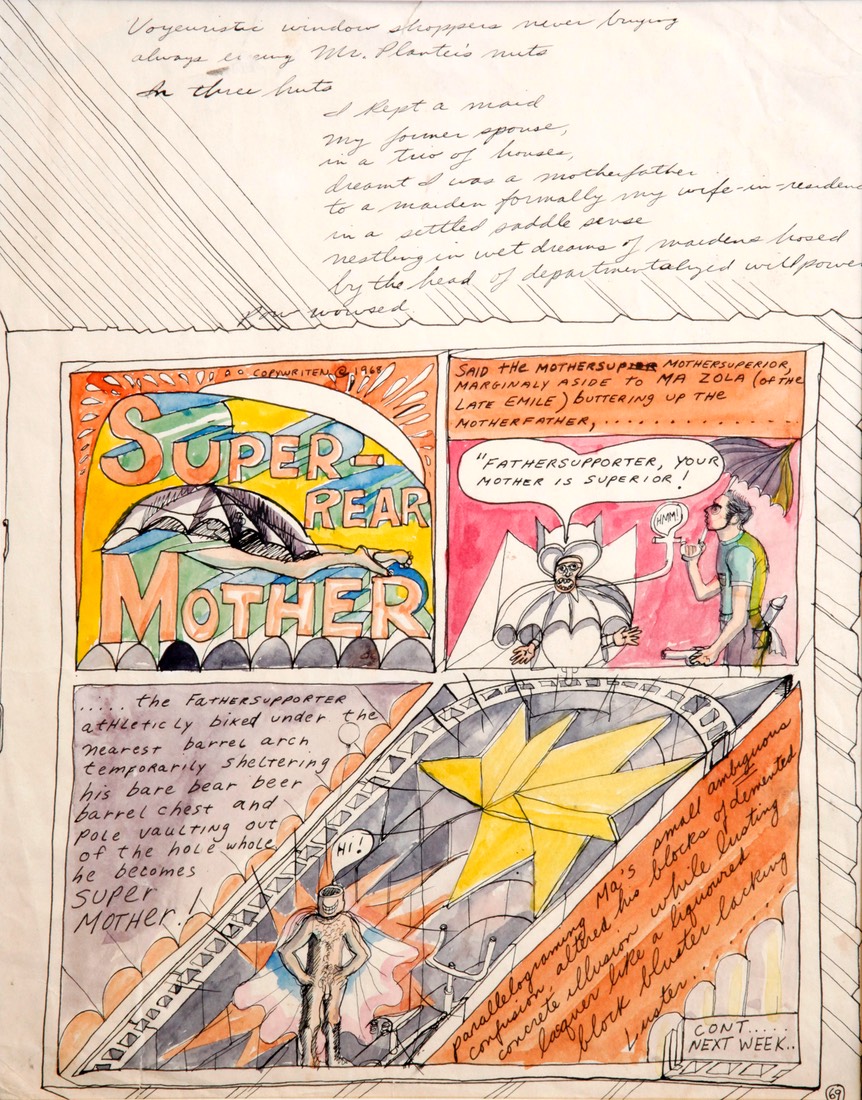 Voyeuristic window shoppers never buying
always Mr. Planter's nuts
In three huts
I kept a maid
my former spouse,
in a trio of houses,
dreamt I was a motherfather
to a maiden formally my wife-in-residen
in a settled saddle sense
nestling in wet dreams of maidens hosed
by the head of departmentalized willpower
wowsed
COPYWRITEN © 1968
SUPER-
REAR
MOTHER
SAID the MOTHERSUPIER MOTHERSUPERIOR,
MARGINALY ASIDE TO MA ZOLA (OF THE
LATE EMILE) BUTTERING UP THE
MOTHERFATHER, . . . . . . . . . . . . .
"FATHERSUPPORTER, YOUR
MOTHER IS SUPERIOR!
HMM!
..... the FATHERSUPPORTER
athleticly biked under the
nearest barrel arch
temporarily sheltering
his bare bear beer
barrel chest and
pole vaulting out
of the hole whole
he becomes
SUPER
MOTHER!
HI!
parallelograming Ma's small ambiguous
confusion, altred his blocks of demented
concrete illusion while lusting
lacquer like a liquoured
block bluster lacking
Luster........
CONT.....
NEXT WEEK..
69